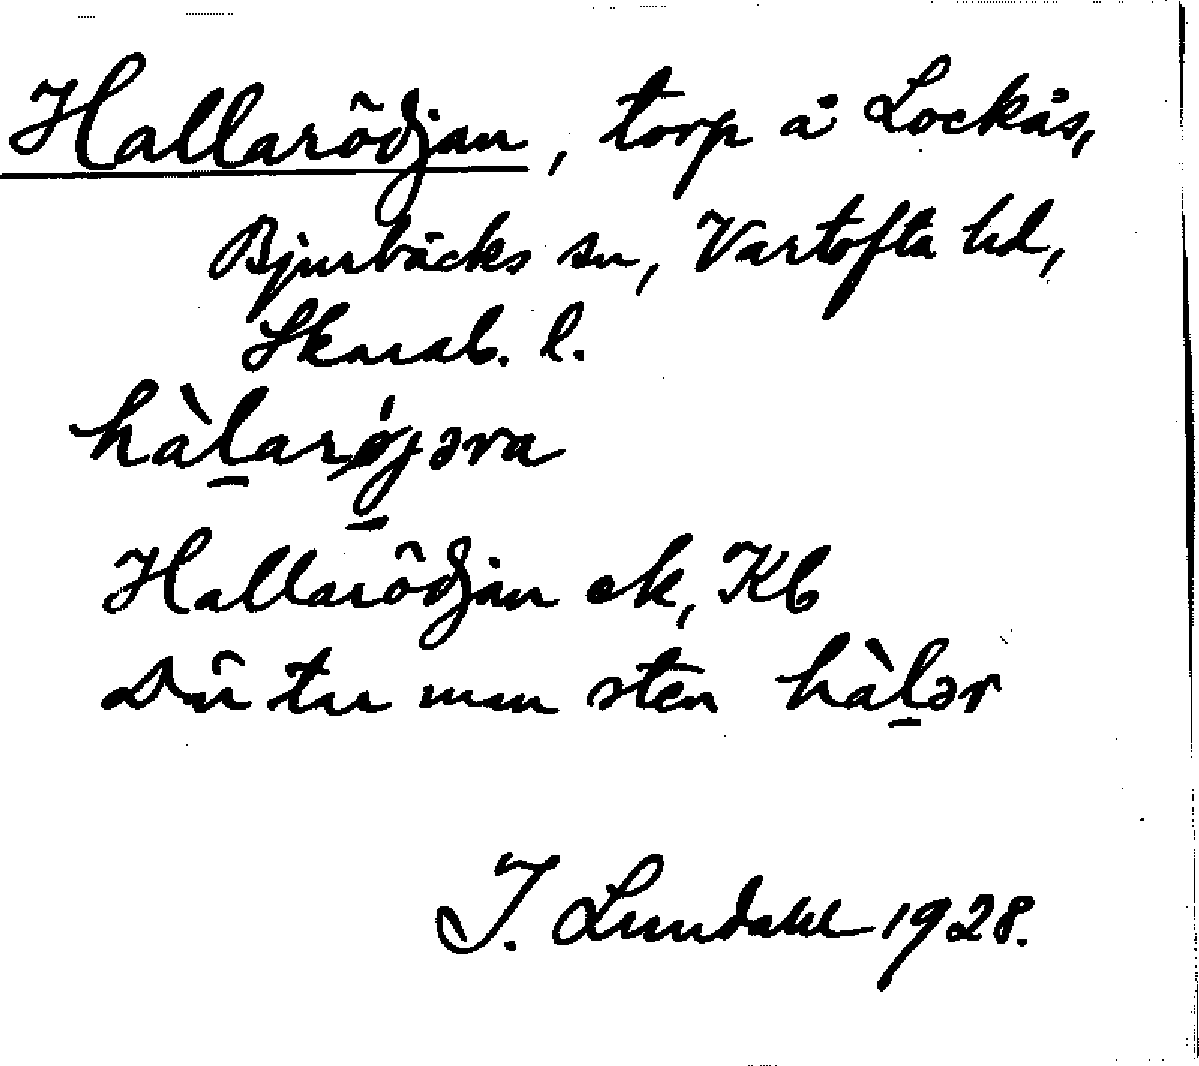 Hallarödjan, torp å Lockås,
Bjurbäcks sn, Vartofta hd,
Skarab. l.
hàl̠arø̠jəra
Hallarödjan ek, Kb
Där tar man sten hàl̠ər
I. Lundahl 1928.